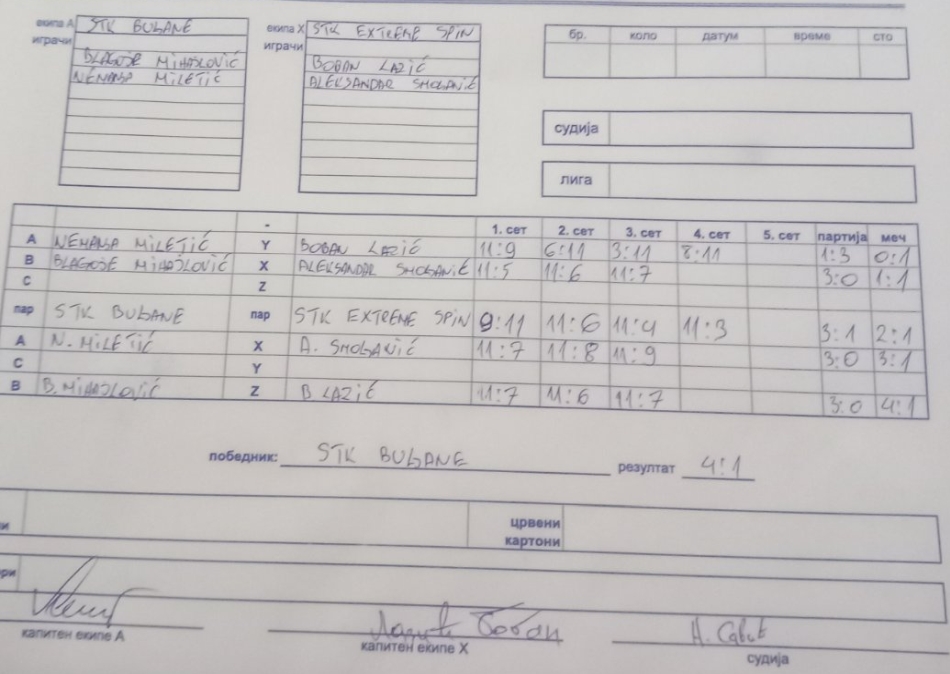 екипа А STK BUBANE екипа X STK EXTREME SPIN
играчи играчи
BLAGOJE MIHAJLOVIĆ BOBAN LAZIĆ
NEMANJA MILETIĆ ALEKSANDAR
бр. коло датум време сто
судија
лига
- 1. сет 2. сет 3. сет 4. сет 5. сет партија меч
A NEMANJA MILETIĆ Y BOBAN LAZIĆ 11:9 6:11 3:11 8:11 1:3 0:1
B BLAGOJE MIHAJLOVIĆ X ALEKSANDAR 11:5 11:6 11:7 3:0 1:1
C Z
пар STK BUBANE пар STK EXTREME SPIN 9:11 11:6 11:4 11:3 3:1 2:1
A N. MILETIĆ X A. 11:7 11:8 11:9 3:0 3:1
C Y
B B. MIHAJLOVIĆ Z B LAZIĆ 11:7 11:6 11:7 3:0 4:1
победник: STK BUBANE резултат 4:1
црвени
картони
Лазић Бобан
капитен екипе А капитен екипе X судија